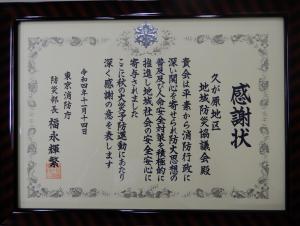 感謝状
久が原地区
地域防災協議会殿
貴会は平素から消防行政に
深い関心を寄せられ防火思想の
普及及び人命安全対策を積極的に
推進し地域社会の安全安心に
寄与されました
ここに秋の火災予防運動にあたり
深く感謝の意を表します
令和四年十一月十四日
東京消防庁
防災部長 福永輝繁